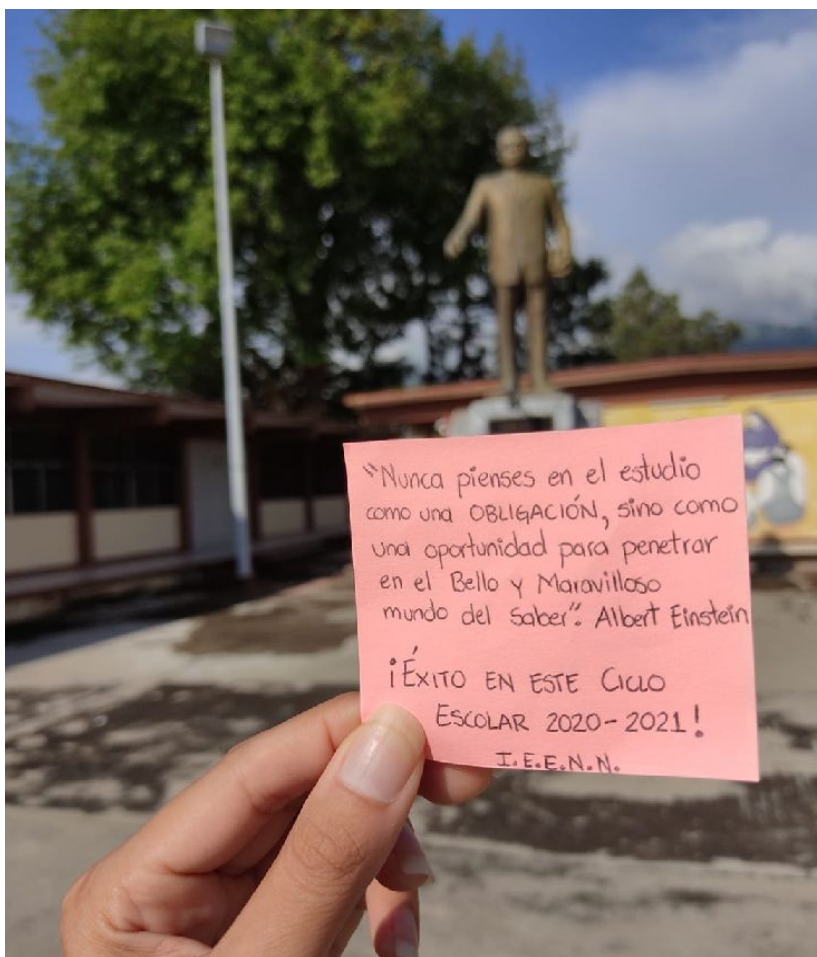 "Nunca pienses en el estudio
como una OBLIGACIÓN, sino como
una oportunidad para penetrar
en el Bello y Maravilloso
mundo del Saber". Albert Einstein
¡ÉXITO EN ESTE CICLO
ESCOLAR 2020-2021!
I.E.E.N.N.